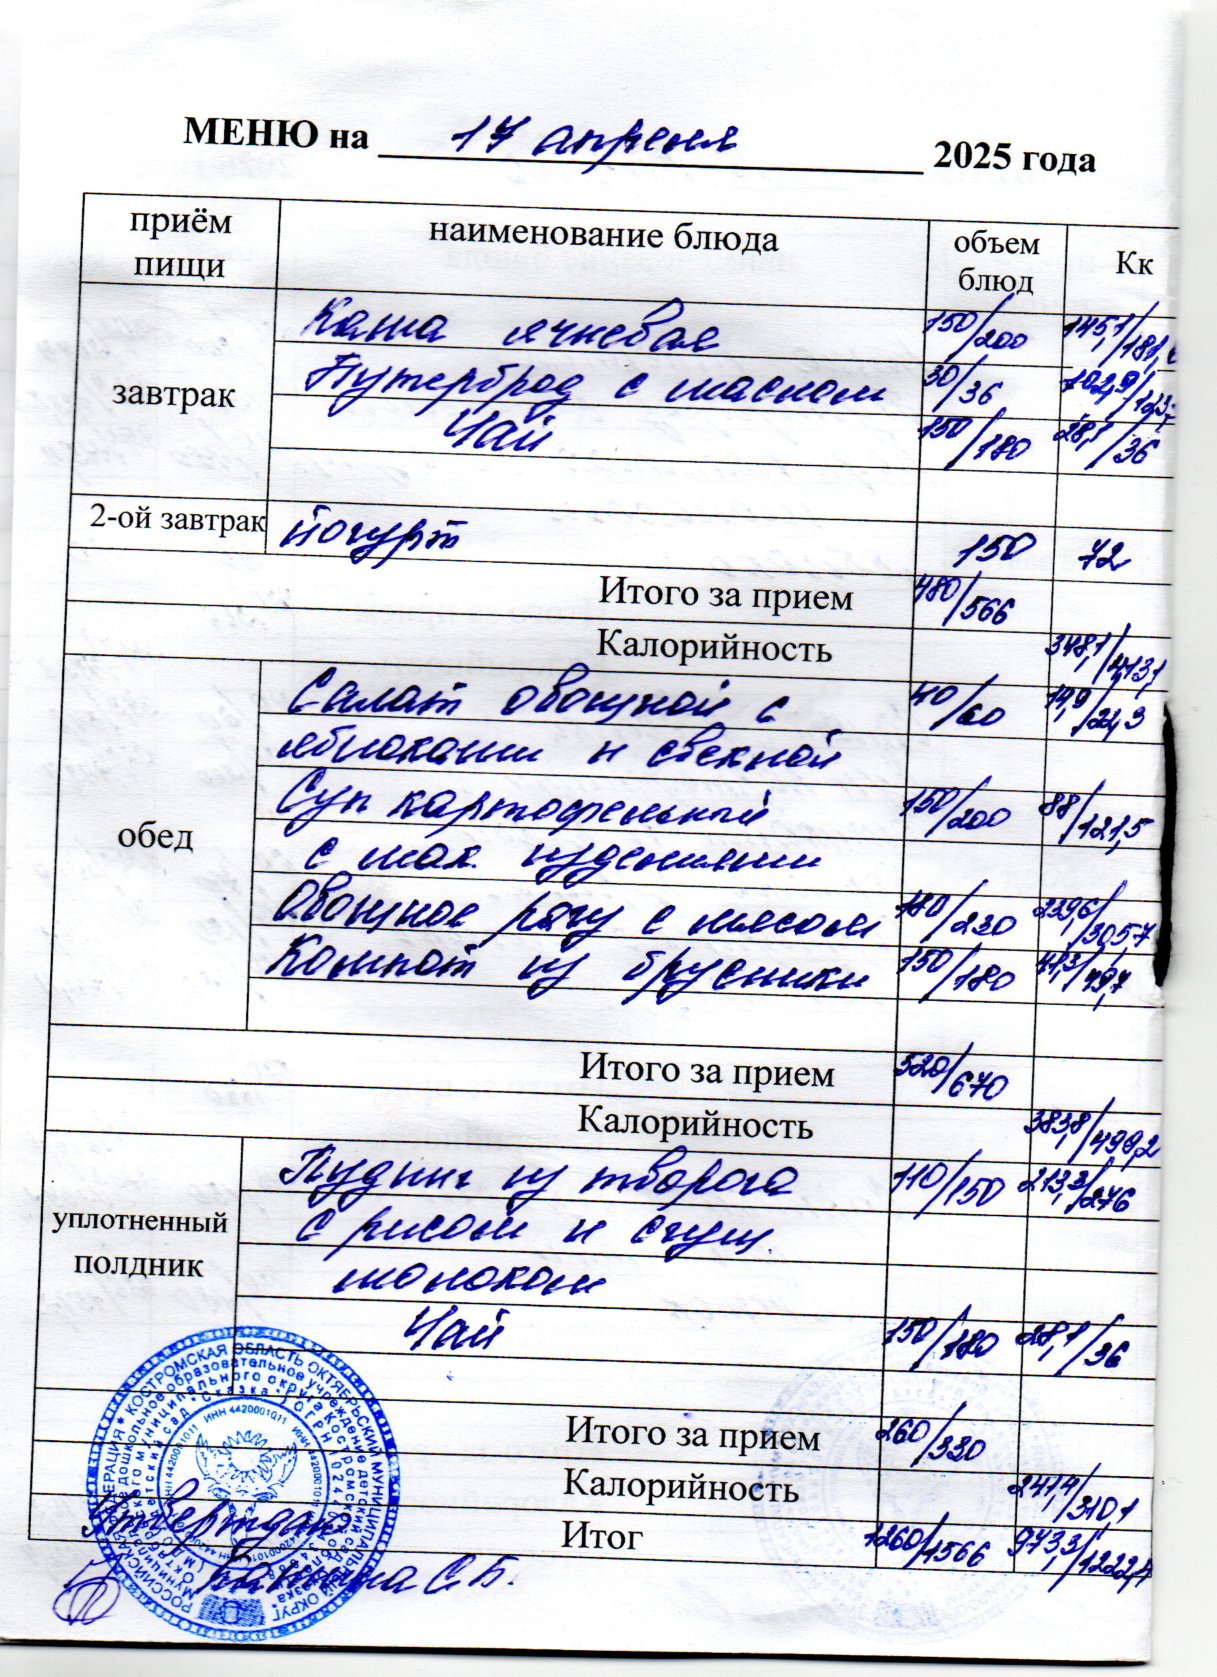 МЕНЮ на 17 апреля 2025 года
приём пищи наименование блюда объем блюд Кк
завтрак
Каша ячневая 150/200 145,1/181,
Бутерброд с маслом 30/36 102,9/123,
Чай 150/180 28,1/36
2-ой завтрак йогурт 150 72
Итого за прием 480/566
Калорийность 348,1/413,1
обед
Салат овощной с 40/60 14,9/22,3
яблоками и свеклой
Суп картофельный 150/200 88/121,5
с мак. изделиями
Овощное рагу с мясом 180/230 229,6/305,7
Компот из брусники 150/180 /49,7
Итого за прием 520/670
Калорийность 383,8/499,2
уплотненный полдник
Пудинг из творога 110/150 213,3/276
с рисом и сгущ.
молоком
Чай 150/180 28,1/36
Итого за прием 260/330
Калорийность 241,4/310,1
Итог 1260/1566 973,3/1222,4
Утверждаю
С.Б.